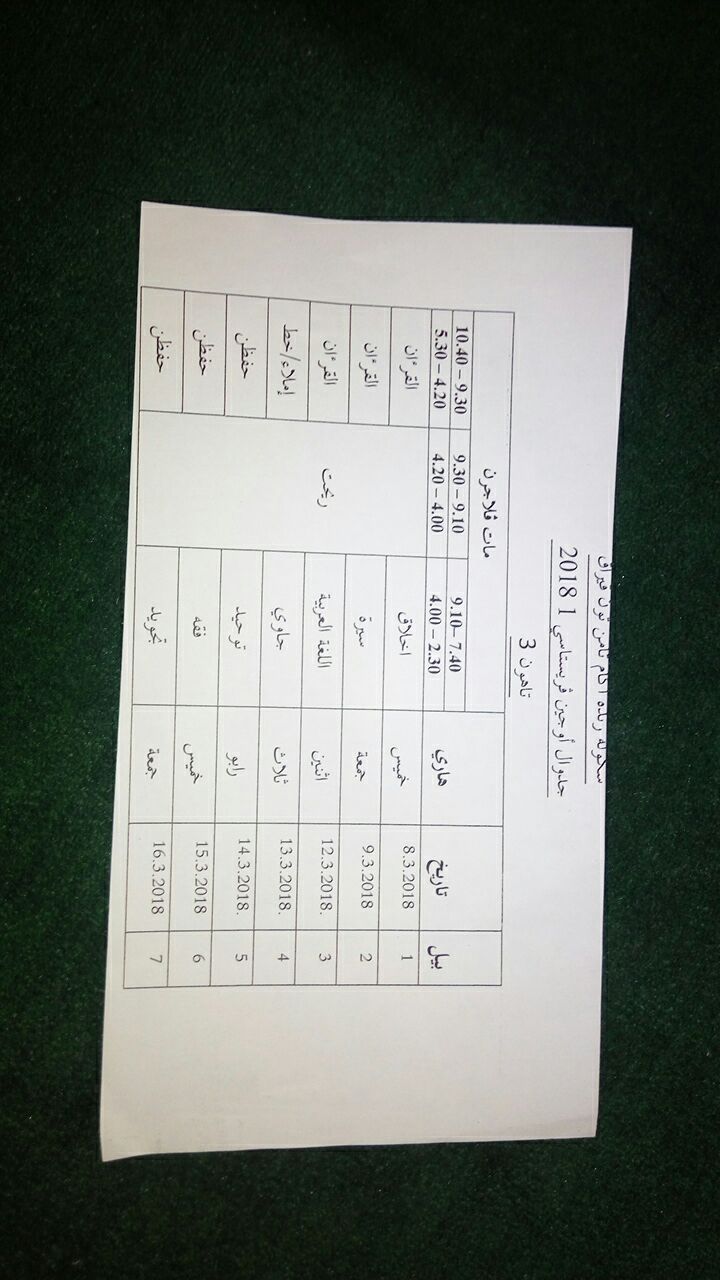 سكوله رنده اڬام تامن تول ڤيراق
جدوال أوجين ڤريستاسي 1 2018
تاهون 3
بيل تاريخ هاري مات ڤلاجرن
7.40 – 9.10 9.10 – 9.30 9.30 – 10.40
2.30 – 4.00 4.00 – 4.20 4.20 – 5.30
1 8.3.2018 خميس اخلاق القرءان
2 9.3.2018 جمعة سيرة القرءان
3 12.3.2018. اثنين اللغة العربية ريحت القرءان
4 13.3.2018. ثلاث جاوي إملاء/خط
5 14.3.2018. رابو توحيد حفظن
6 15.3.2018 خميس فقه حفظن
7 16.3.2018 جمعة تجويد حفظن